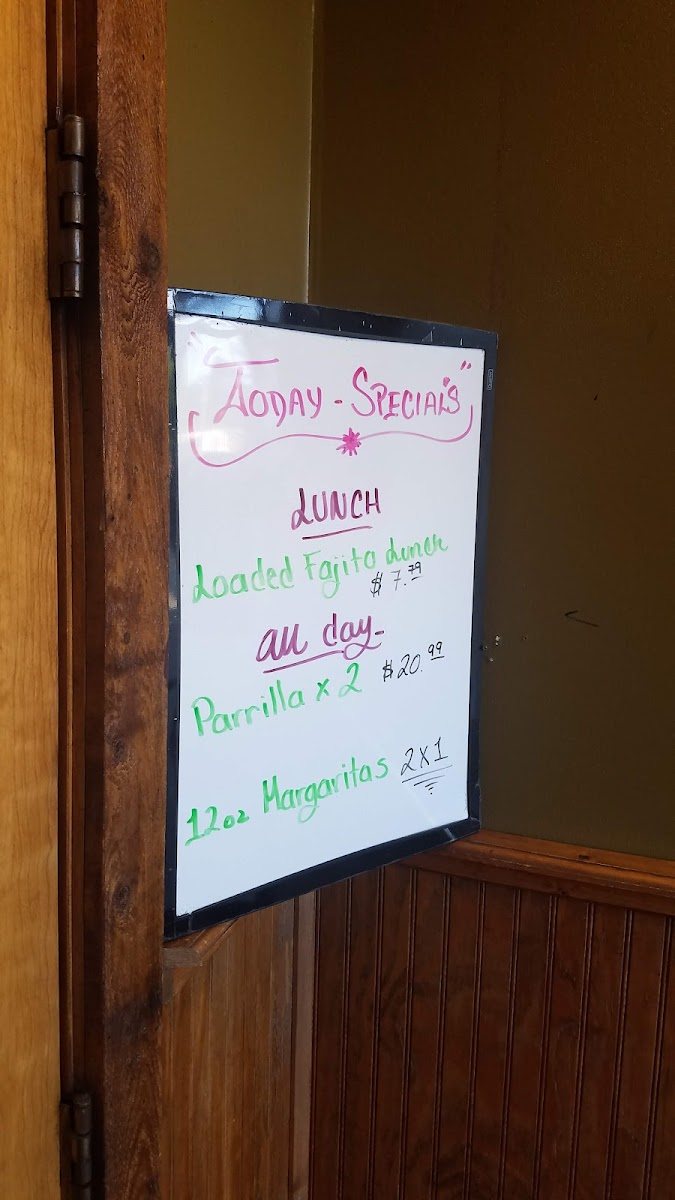 "Today - Specials"
Lunch
Loaded Fajita Lunch
$7.79
all day-
Parrilla x 2 $20.99
12oz Margaritas 2x1